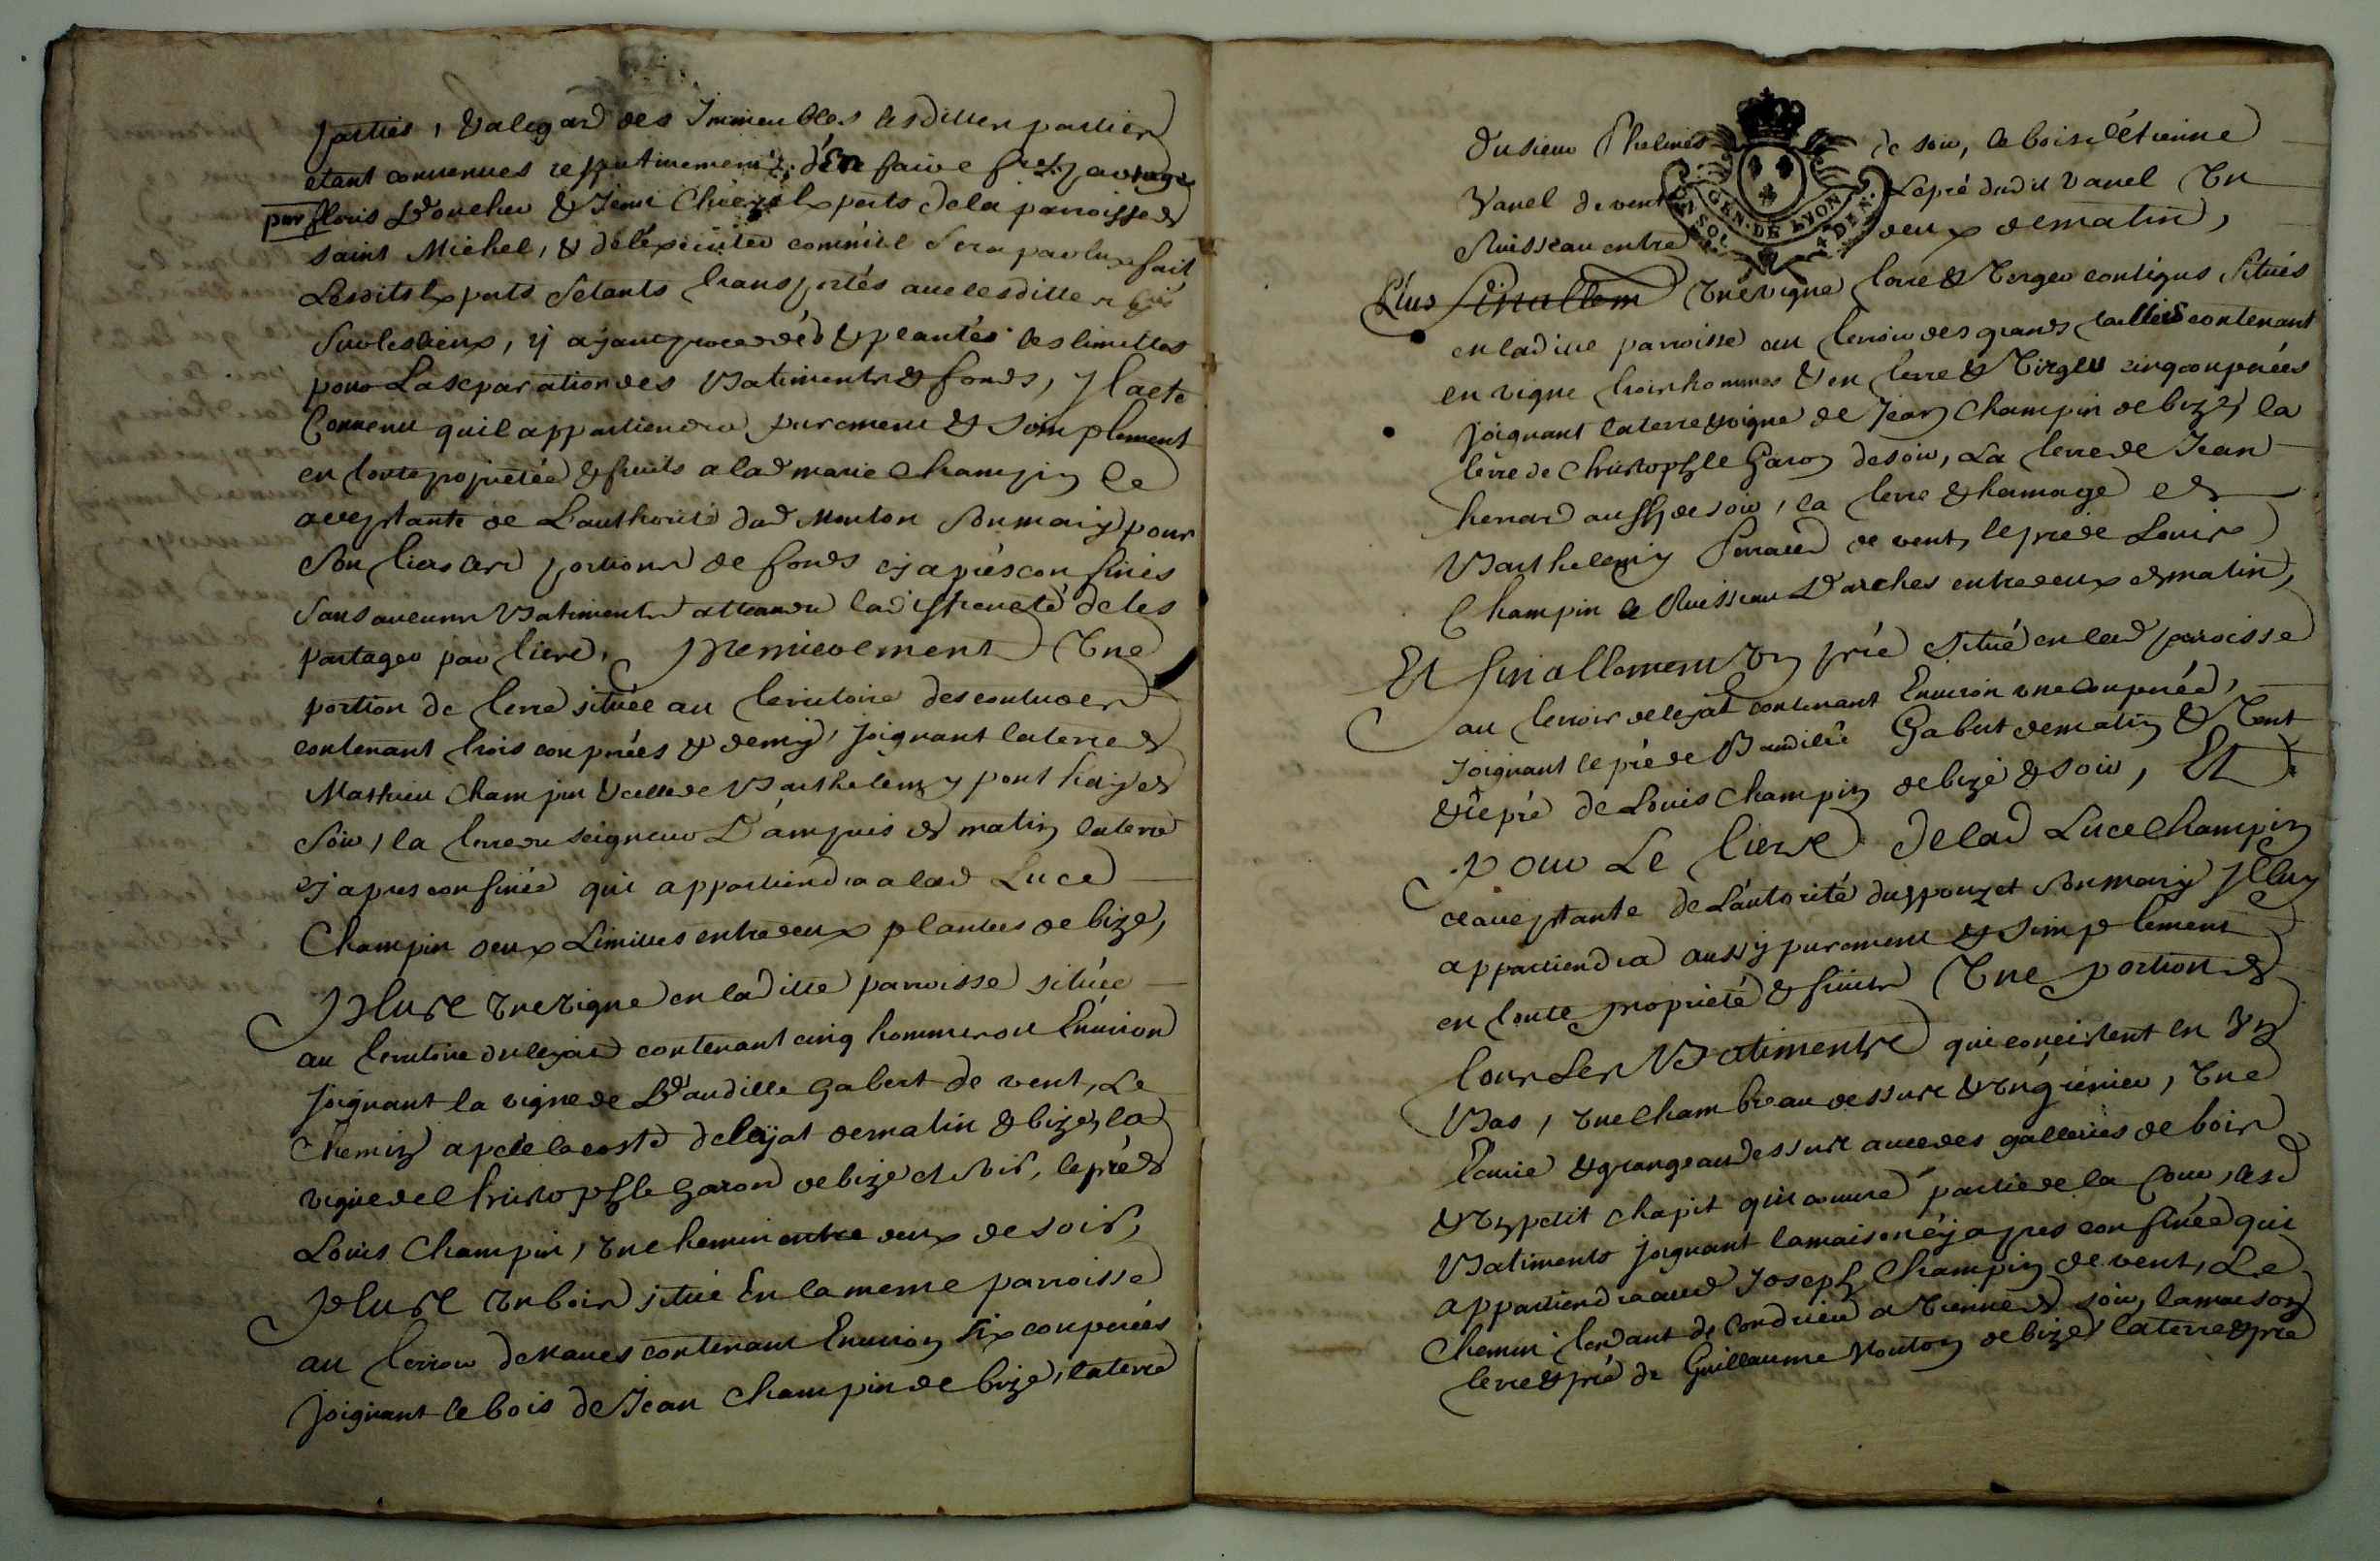 parties, & alegard des Immeubles lesdittes parties
etant convenues respectivement d'en faire faire partage
par floris Boucher & Remi Chiezes Experts dela parroisse de
saint Michel, & deléxécuter comm'il sera par luxe fait
Lesdits Experts Setants transportés avec lesdittes
Sur les lieux, y ayant procedés & plantés les limittes
pour La separation des Batiments & fonds, Il a eté
Convenu quil appartiendra purement & simplement
en toute proprietée & fruits a lad marie Champin ce
aceptante de L'authorité dud Mouton Son mary pour
Son tiers les portions de fonds cy après confinés
Sans aucuns Batiments attandu la difficuleté de les
partager par tiers, Premierement Une
portion de terre située au territoire des coutures
contenant trois couprées & demy, Joignant la terre de
Mathieu Champin & celle de Barthelemy pont haye de
Soir, la terre du seigneur D'ampuis de matin la terre
cy apres confinée qui appartiendra a lad Luce
Champin deux Limittes entre deux plantées de bize,
Pluse Une vigne en laditte parroisse située
au territoire du lejat contenant cinq hommes ou Environ
Joignant la vigne de Baudille Gabert de vent, Le
Chemin apelé la coste de lejat de matin & bize, la
vigne de Christophle Garon de bize et soir, le pré de
Louis Champin, Un chemin entre deux de soir,
Pluse Un bois situé En la meme parroisse
au terroir de Naves contenant Environ six couperées
Joignant le bois de Jean Champin de bize, la terre
du sieur Thelmes de soir, le bois d'étienne
Vanel de vent Le pré dudit Vanel Un
Ruisseau entre deux de matin,
GEN. DE LYON
Plus Finallem Une vigne terre & Verger contigus Situés
en laditte parroisse au terroir des grands taillis contenant
en vigne trois hommes & en terre & Verger cinq coupeées
Joignant la terre & vigne de Jean Champin de bize, la
terre de Christophle Garon de soir, La terre de Jean
henard aussy de soir, la terre & hermage de
Barthelemy Perraud de vent, le pré de Louis
Champin le Ruisseau D'arches entre deux de matin,
Et finallement Un pré Situé en lad parroisse
au terroir de lejat contenant Environ une couperée,
Joignant le pré de Baudille Gabert de matin & Vent
& le pré de Louis Champin de bize & soir, Et
pour Le tiers de lad Luce Champin
ce aceptante de L'autorité du pouzet Son mary Il luy
appartiendra aussy purement & simplement
en toute proprieté & fruits Une portion de
tous Les Batiments qui concistent en Un
Bas, Une Chambre au dessus & Un grénier, Une
Ecurie & grange au dessus avec des galleries de bois
& Un petit Chapit qui couvre partie de la Cour, lesd
Batiments joignant la maison cy apres confinée qui
appartiendra aud Joseph Champin de vent, Le
Chemin tendant de Condrieu a Vienne de soir, la maison
terre & pré de Guillaume Mouton de bize, la terre & pré